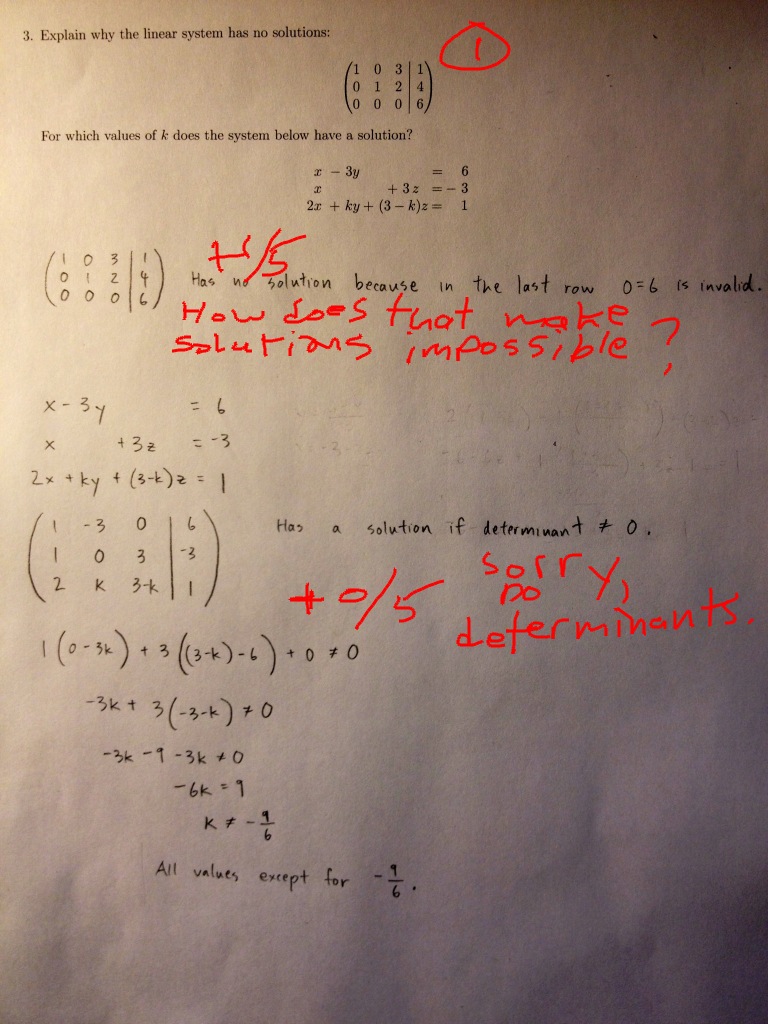 3. Explain why the linear system has no solutions:
1
1 0 3 | 1
0 1 2 | 4
0 0 0 | 6
For which values of k does the system below have a solution?
x − 3y = 6
x + 3 z = − 3
2x + ky + (3 − k)z = 1
1 0 3 | 1
0 1 2 | 4
0 0 0 | 6
+1/5
Has no solution because in the last row 0=6 is invalid.
How does that make
solutions impossible?
x - 3y = 6
x + 3z = -3
2x + ky + (3-k)z = 1
1 -3 0 | 6
1 0 3 | -3
2 k 3-k | 1
Has a solution if determinant ≠ 0.
+0/5
sorry,
no
determinants.
1(0-3k) + 3((3-k)-6) + 0 ≠ 0
-3k + 3(-3-k) ≠ 0
-3k -9 -3k ≠ 0
-6k = 9
k ≠ -9/6
All values except for -9/6.